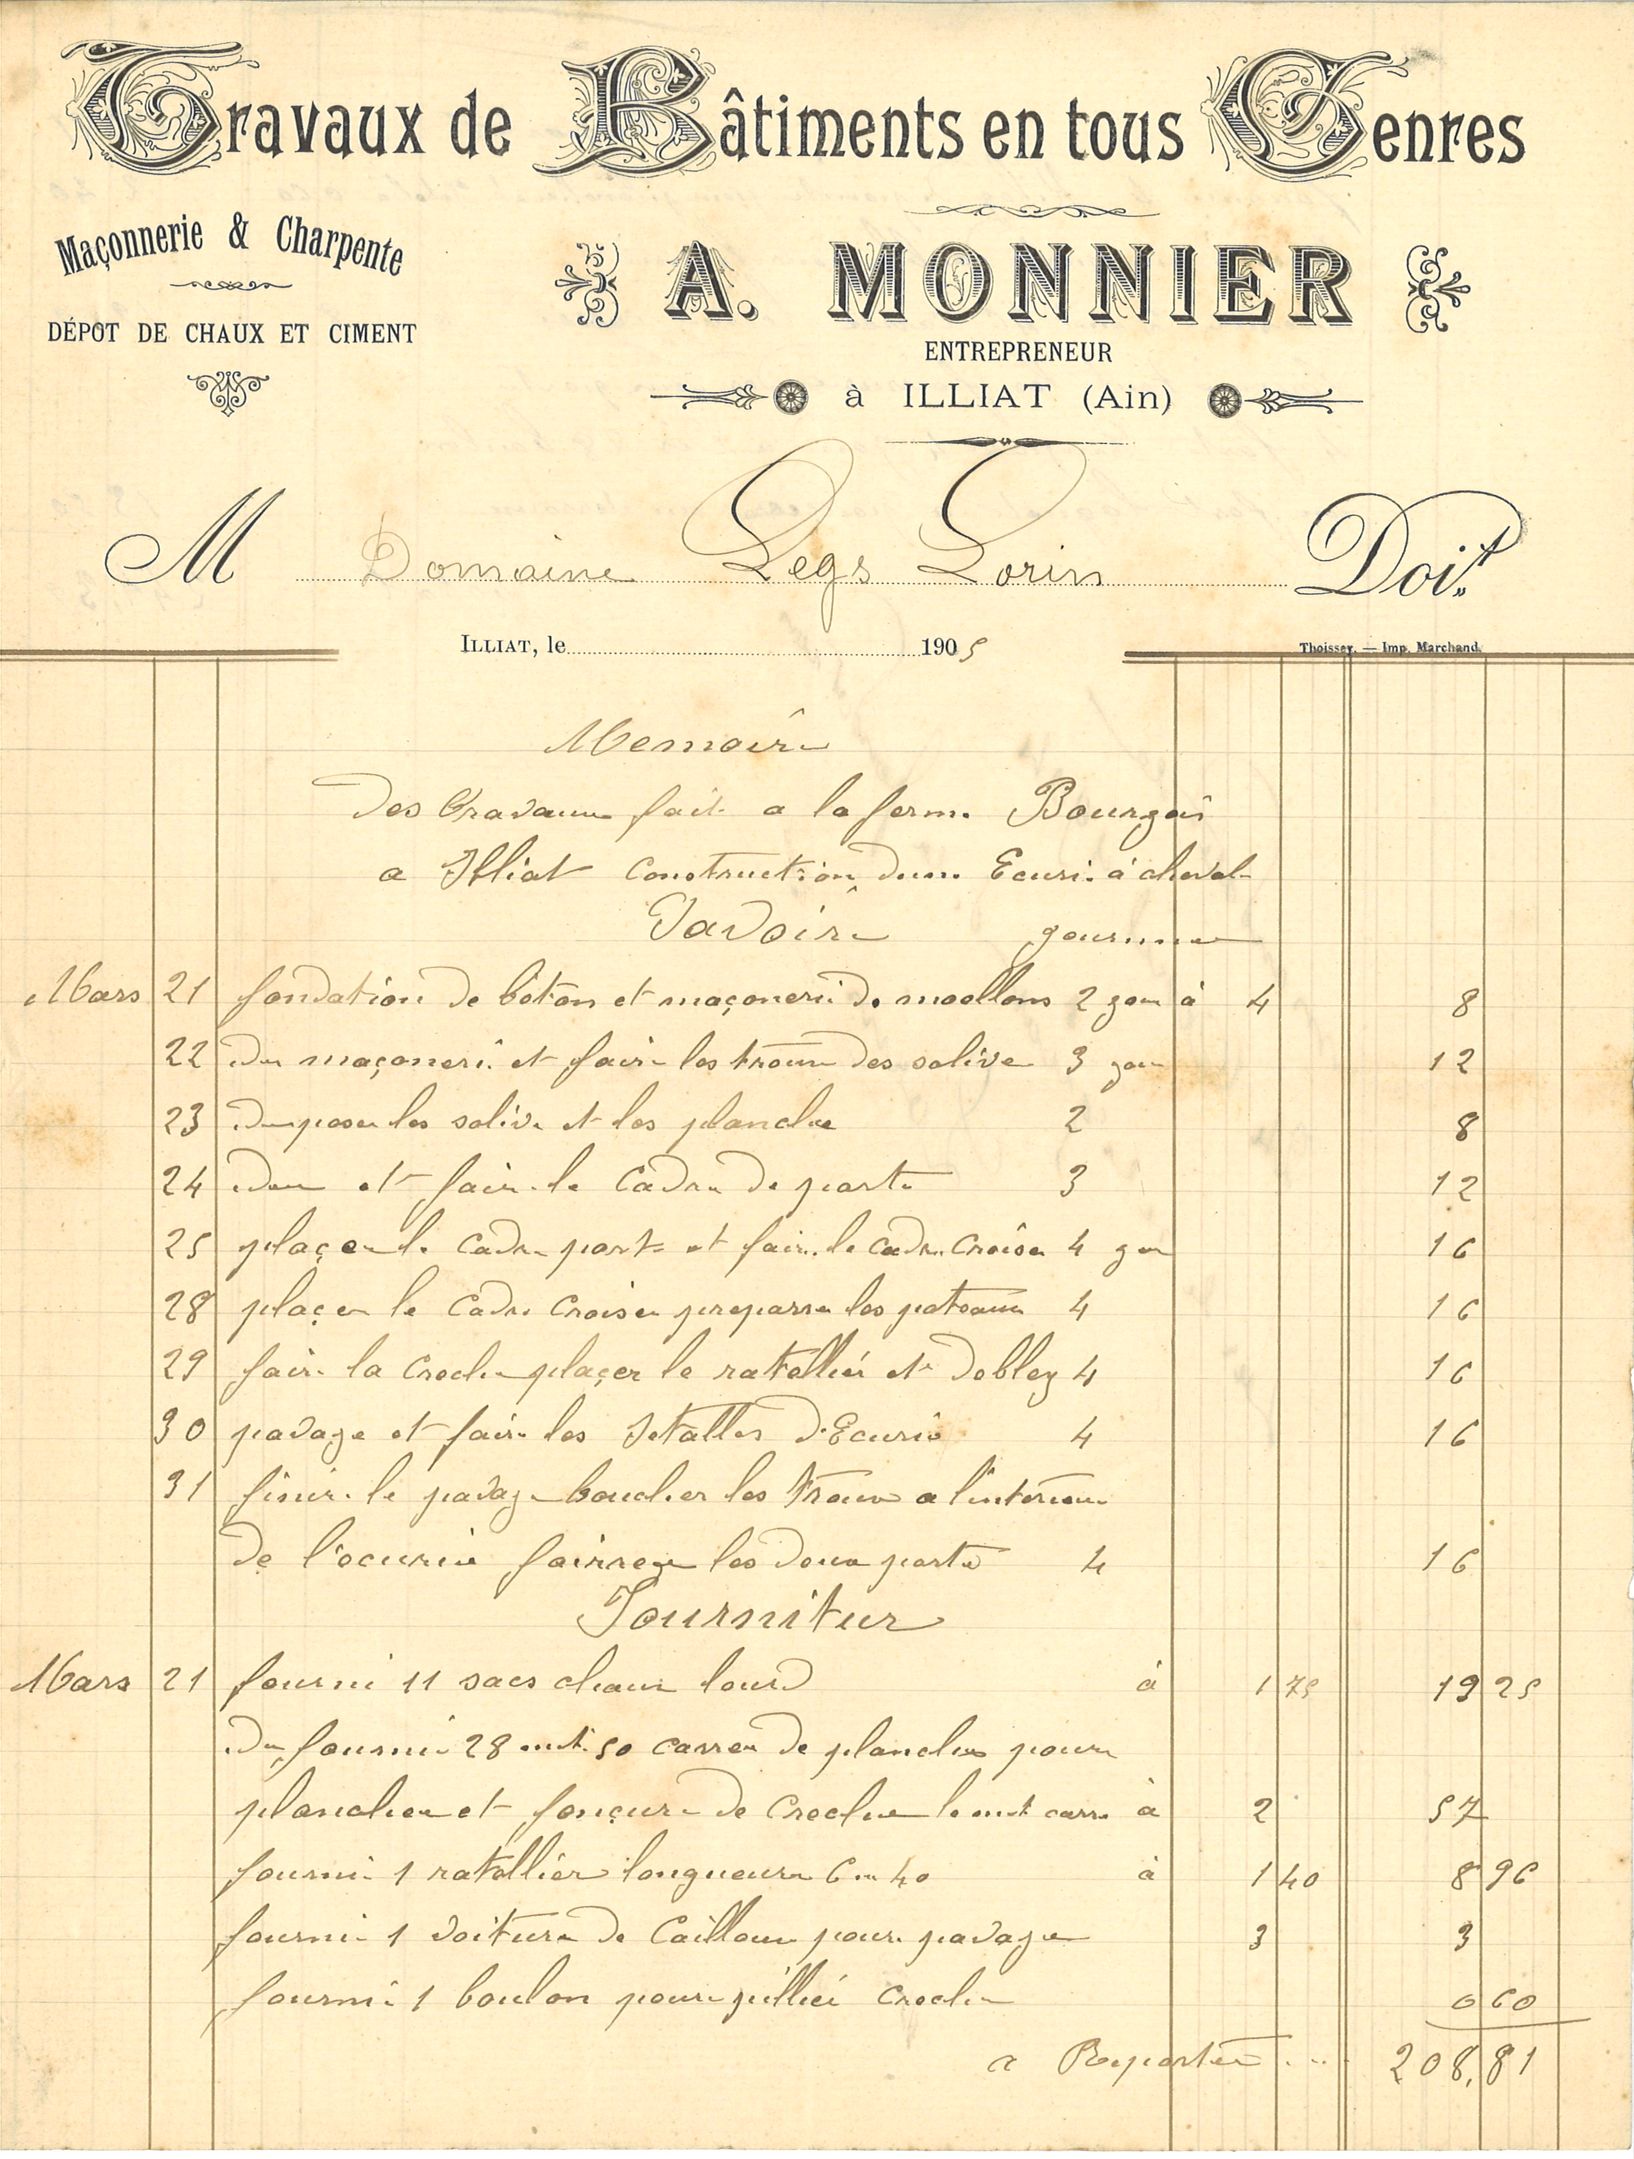 Travaux de Bâtiments en tous Genres
Maçonnerie & Charpente
DÉPOT DE CHAUX ET CIMENT
A. MONNIER
ENTREPRENEUR
à ILLIAT (Ain)
M Domaine Legs Lorin Doit
ILLIAT, le 1905
Thoissey. — Imp. Marchand.
Memoire
Des travaux fait a la ferme Bourgois
a Illiat Construction dune Ecurie à cheval
Savoir journne
Mars 21 fondation de beton et maçonerie de moellons 2 jour à 4 8
22 du maçonerie et faire les troux des solive 3 jour 12
23 du poser les solive et les planche 2 8
24 du et faire le Cadre de porte 3 12
25 plaçer le cadre porte et faire le cadre Croiser 4 jour 16
28 plaçer le Cadre Croiser preparer les poteaux 4 16
29 faire la Creche plaçer le ratellier et dobley 4 16
30 pavage et faire les Stalles d'Ecurie 4 16
31 finir le pavage boucher les troux a l'interieur
de l'ecurie les deux porte 4 16
Fournitur
Mars 21 fourni 11 sacs chaux lourd à 1 75 19 25
du fourni 28 mt 50 carrer de planches pour
plancher et fonçure de Creche le mt carre à 2 57
fourni 1 ratellier longueur 6 m 40 à 1 40 8 96
fourni 1 voiture de Cailloux pour pavage 3 3
fourni 1 boulon pour pillier creche 0 60
a Reporter .... 208,81